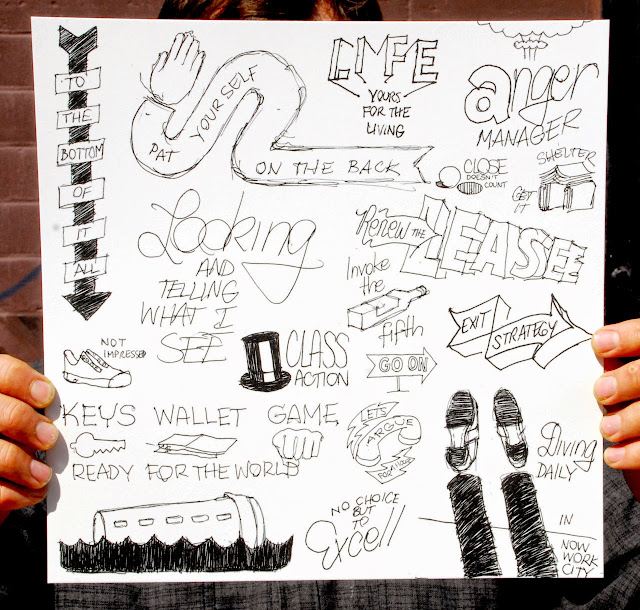 TO
THE
BOTTOM
OF
IT
ALL
PAT YOURSELF
ON THE BACK
LIFE
YOURS
FOR THE
LIVING
anger
MANAGER
CLOSE
DOESN'T
COUNT
GET
IT
SHELTER
Looking
AND
TELLING
WHAT I
SEE
Renew THE
LEASE
Invoke
the
fifth
EXIT STRATEGY
NOT
IMPRESSED
CLASS
ACTION
GO ON
KEYS WALLET GAME
READY FOR THE WORLD
LETS
ARGUE
FOR A
NO CHOICE
BUT
TO
Excell
Diving
DAILY
IN
NOW
WORK
CITY